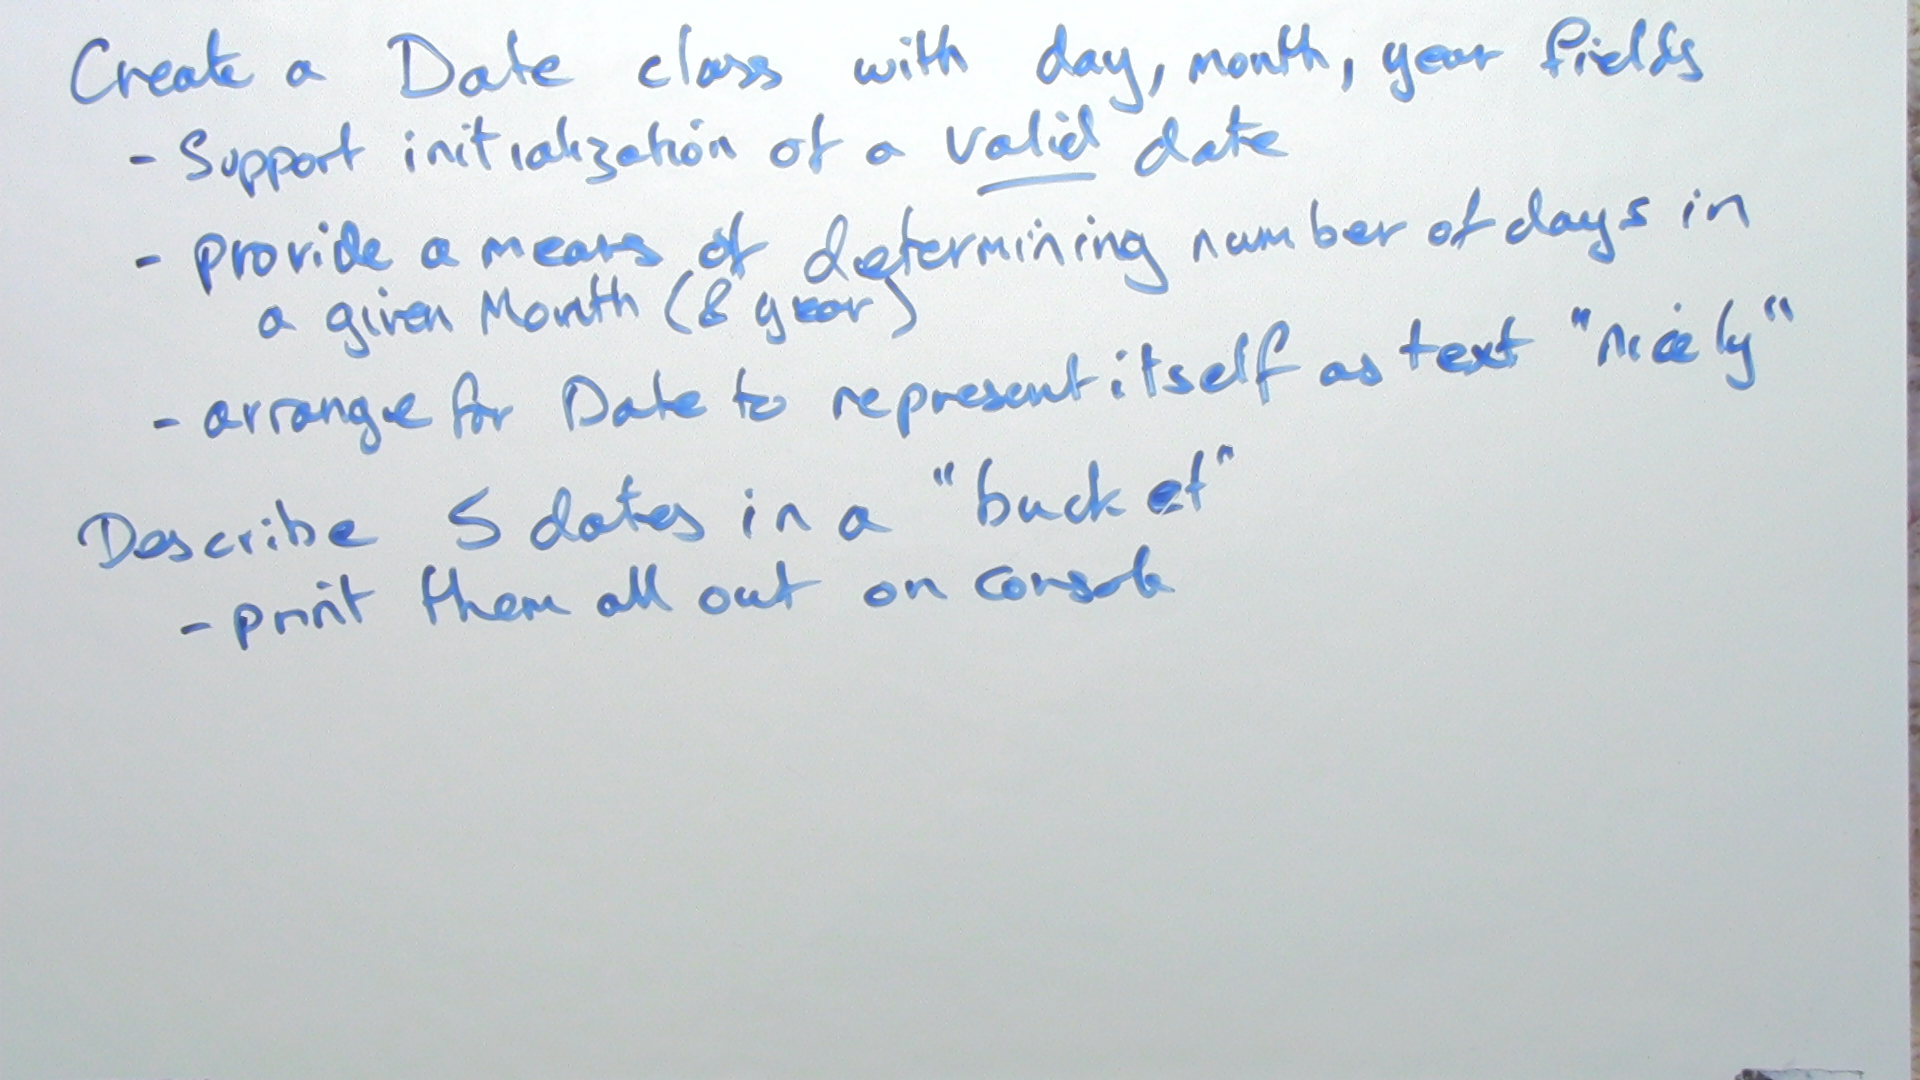 Create a Date class with day, month, year fields
- Support initialization of a valid date
- provide a means of determining number of days in
a given Month (& year)
- arrange for Date to represent itself as text "nicely"
Describe 5 dates in a "bucket"
- print them all out on console